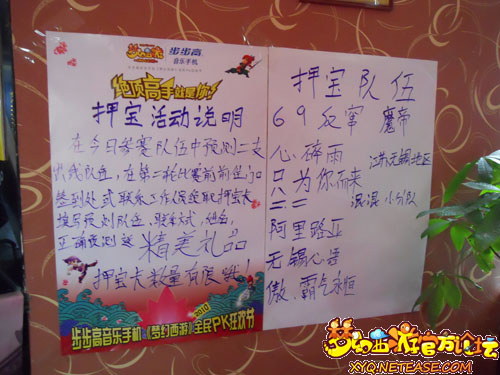 梦幻西游
步步高
音乐手机
绝顶高手就是你!
押宝活动说明
在今日参赛队伍中预测二支
优胜队伍,在第二轮比赛前前往门口
签到处或联系工作人员领取押宝卡
填写预测队伍、联系方式、组别,
正确预测送 精美礼品
押宝卡数量有限哦!
2010
步步高音乐手机《梦幻西游》全民PK狂欢节
押宝队伍
69反牢 魔帝
心碎雨 江苏无锡地区
只为你而来
二二 混混小分队
阿里路亚
无锡心语
傲、霸气永恒
梦幻西游官方论坛
XYQ.NETEASE.COM